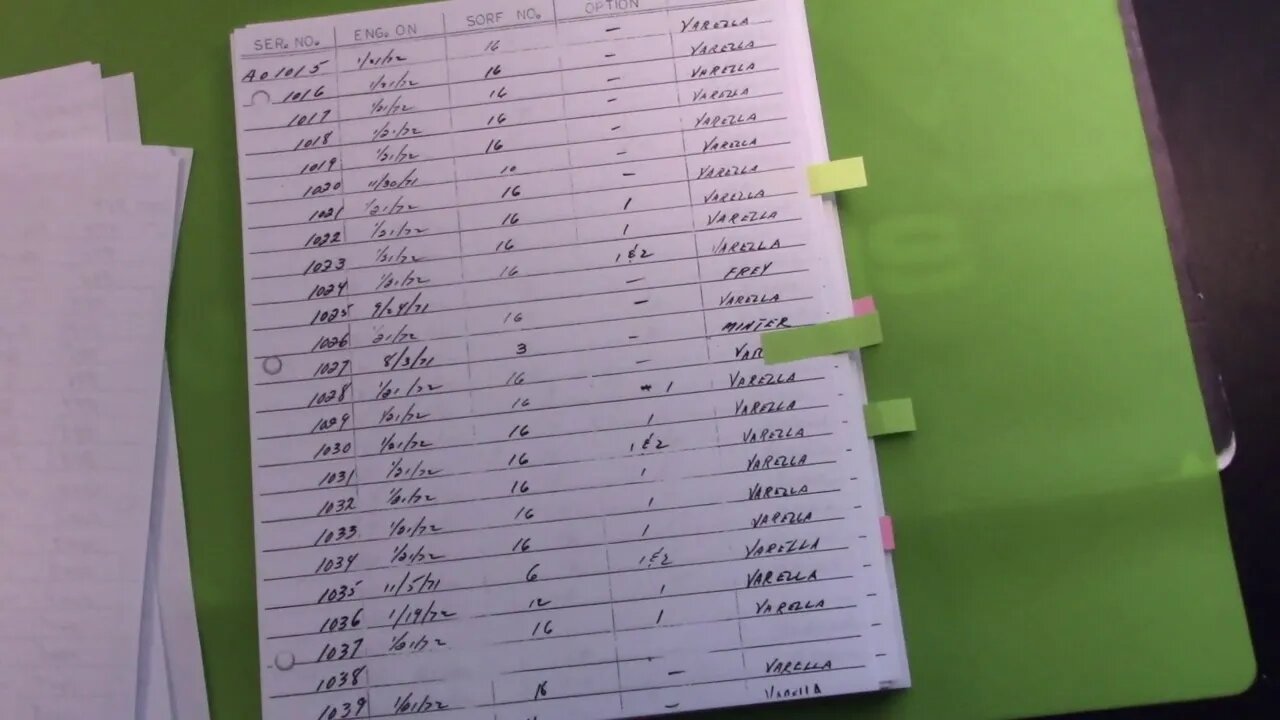 SER. NO. ENG. ON SORF NO. OPTION
A0 1015 1/21/72 16 — VARELLA
1016 1/21/72 16 — VARELLA
1017 1/21/72 16 — VARELLA
1018 1/21/72 16 — VARELLA
1019 1/21/72 16 — VARELLA
1020 11/30/71 10 — VARELLA
1021 1/21/72 16 — VARELLA
1022 1/21/72 16 1 VARELLA
1023 1/21/72 16 1 VARELLA
1024 1/21/72 16 1&2 VARELLA
1025 9/24/71 — FREY
1026 1/21/72 16 — VARELLA
1027 8/3/71 3 — MINTER
1028 1/21/72 16 — VAR
1029 1/21/72 16 * 1 VARELLA
1030 1/21/72 16 1 VARELLA
1031 1/21/72 16 1&2 VARELLA
1032 1/21/72 16 1 VARELLA
1033 1/21/72 16 1 VARELLA
1034 1/21/72 16 1 VARELLA
1035 11/5/71 6 1&2 VARELLA
1036 1/19/72 12 1 VARELLA
1037 1/21/72 16 1 VARELLA
1038
1039 1/21/72 16 — VARELLA
VARELLA